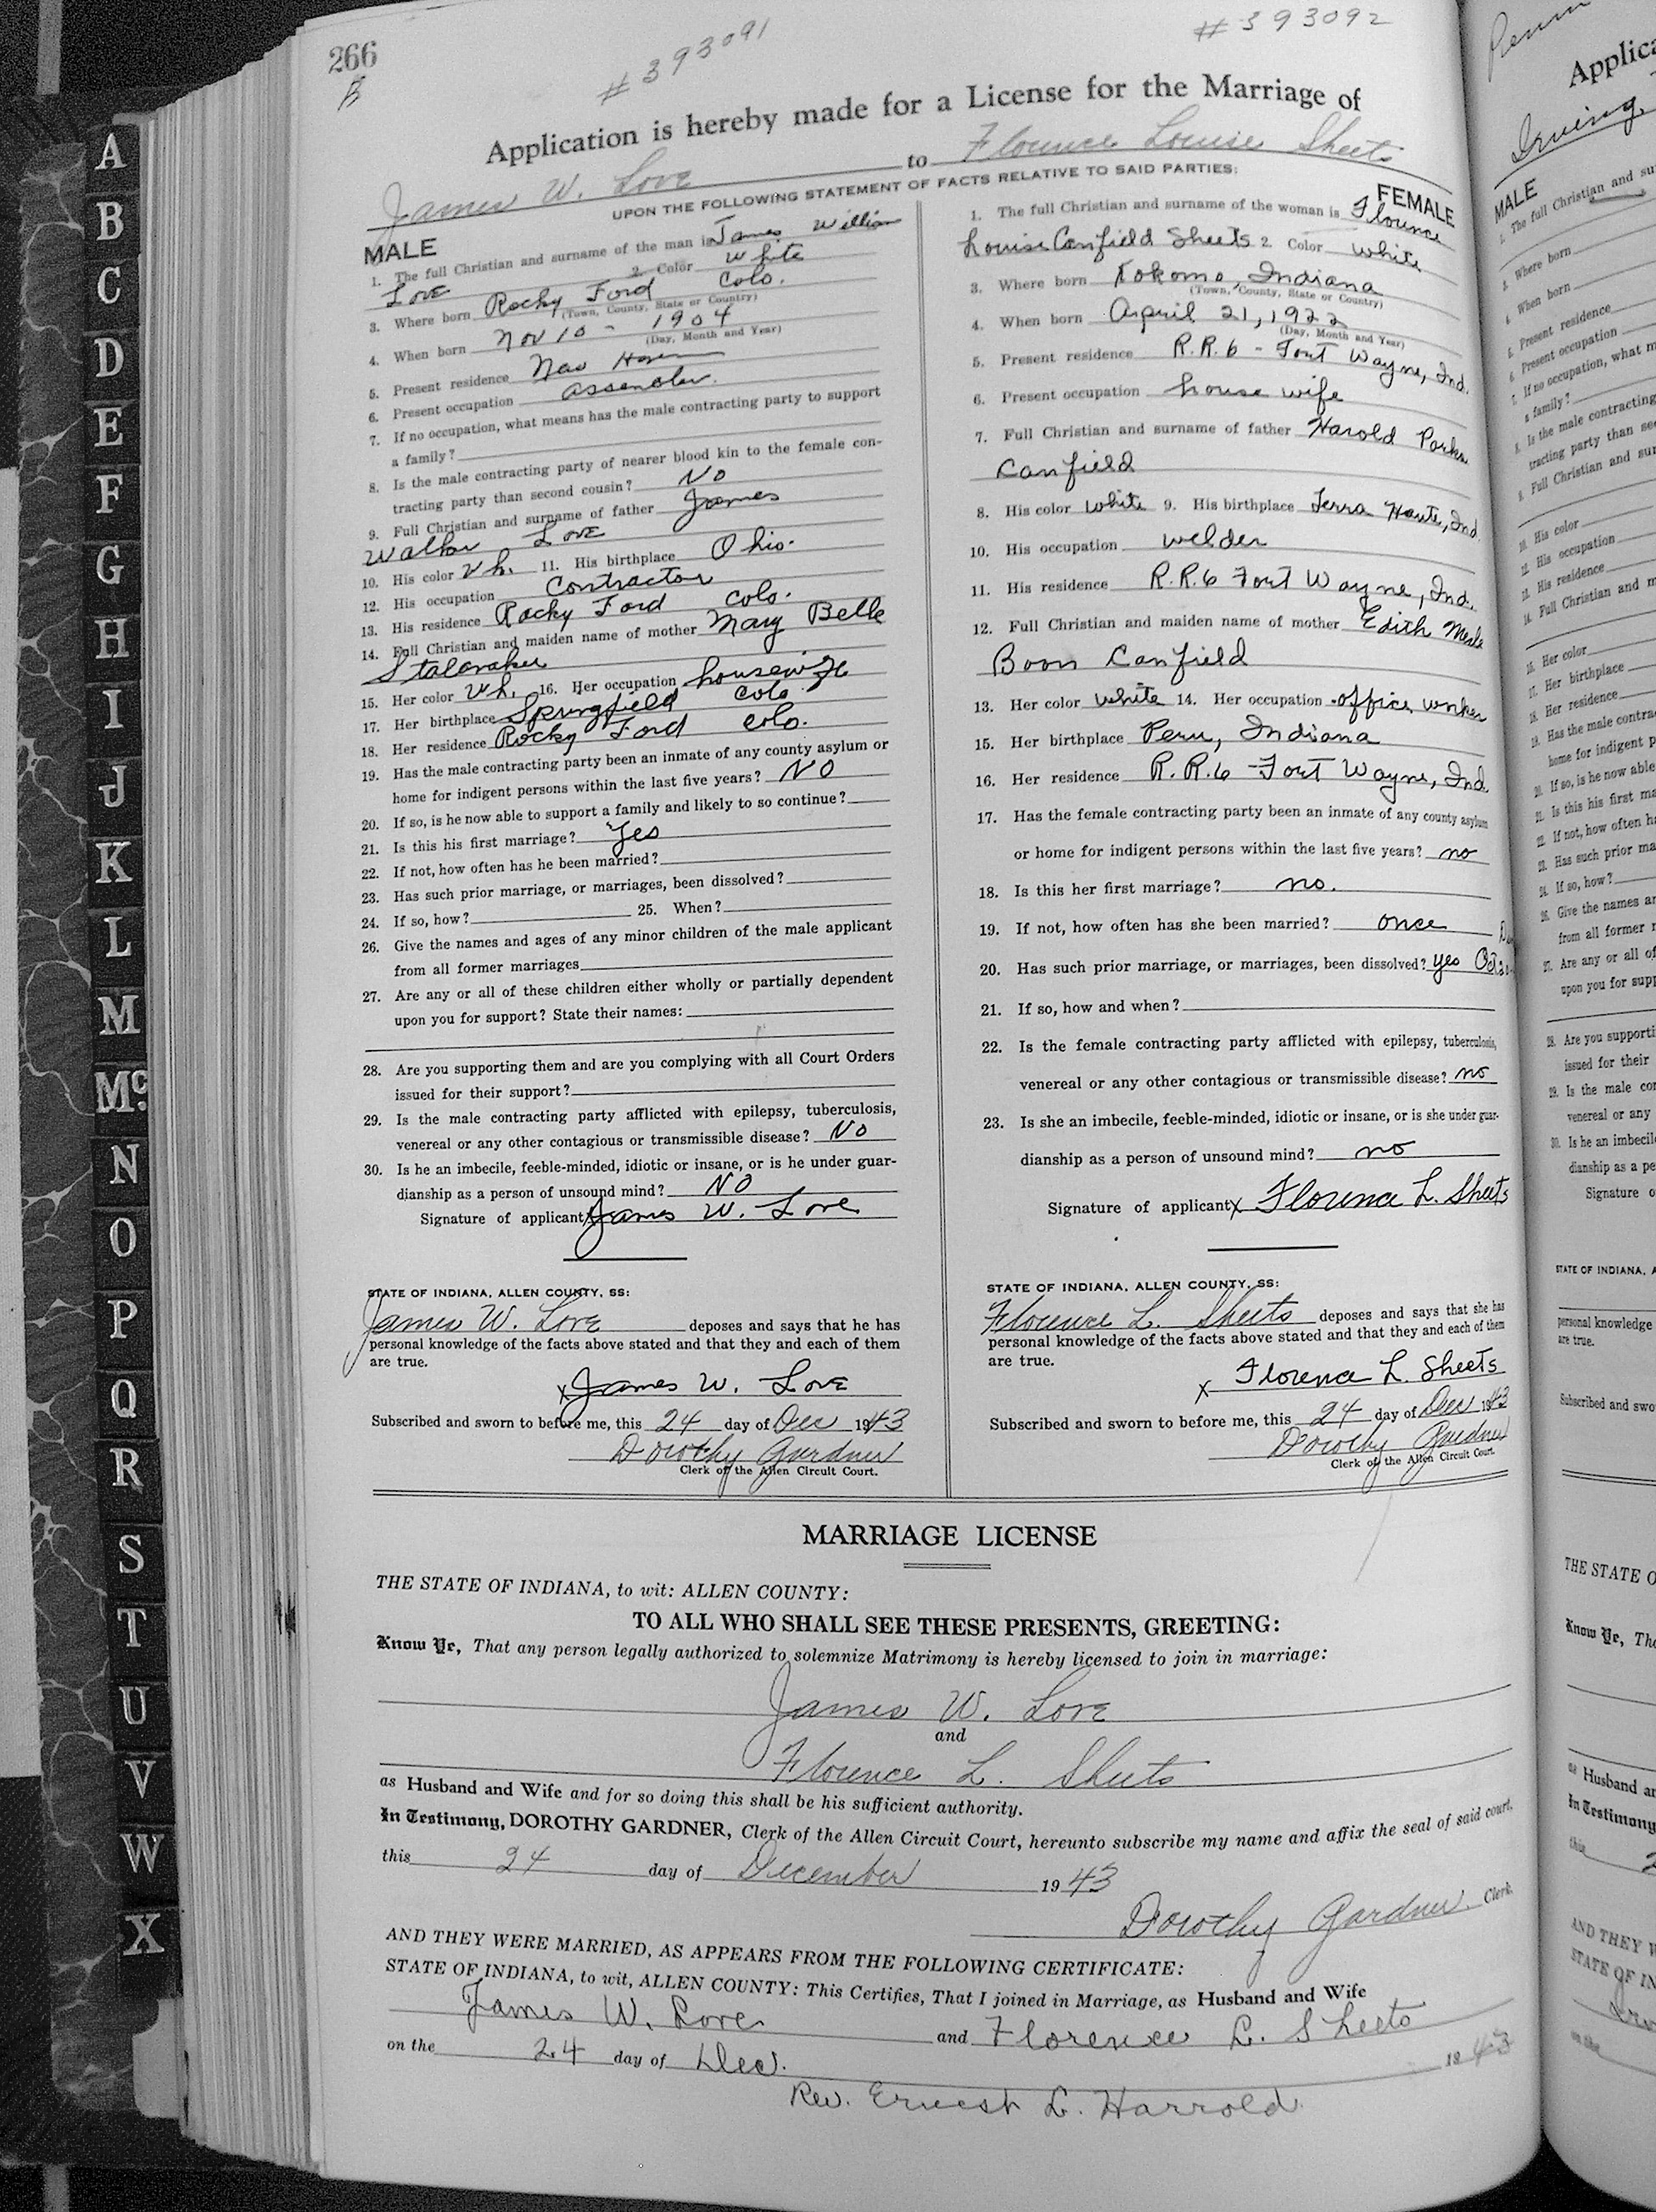 266
B
# 393091
# 393092
Application is hereby made for a License for the Marriage of
James W. Love to Florence Louise Sheets
UPON THE FOLLOWING STATEMENT OF FACTS RELATIVE TO SAID PARTIES:
MALE
1. The full Christian and surname of the man is James William
Love 2. Color White
3. Where born Rocky Ford Colo.
(Town, County, State or Country)
4. When born Nov 10 - 1904
(Day, Month and Year)
5. Present residence New Haven
6. Present occupation assembler.
7. If no occupation, what means has the male contracting party to support
a family?
8. Is the male contracting party of nearer blood kin to the female con-
tracting party than second cousin? No
9. Full Christian and surname of father James
Walker Love
10. His color Wh. 11. His birthplace Ohio.
12. His occupation Contractor
13. His residence Rocky Ford Colo.
14. Full Christian and maiden name of mother Mary Belle
Stalonaker
15. Her color Wh. 16. Her occupation housewife
17. Her birthplace Springfield Colo.
18. Her residence Rocky Ford Colo.
19. Has the male contracting party been an inmate of any county asylum or
home for indigent persons within the last five years? NO
20. If so, is he now able to support a family and likely to so continue?
21. Is this his first marriage? Yes
22. If not, how often has he been married?
23. Has such prior marriage, or marriages, been dissolved?
24. If so, how? 25. When?
26. Give the names and ages of any minor children of the male applicant
from all former marriages
27. Are any or all of these children either wholly or partially dependent
upon you for support? State their names:
28. Are you supporting them and are you complying with all Court Orders
issued for their support?
29. Is the male contracting party afflicted with epilepsy, tuberculosis,
venereal or any other contagious or transmissible disease? No
30. Is he an imbecile, feeble-minded, idiotic or insane, or is he under guar-
dianship as a person of unsound mind? NO
Signature of applicant James W. Love
STATE OF INDIANA, ALLEN COUNTY, SS:
James W. Love deposes and says that he has
personal knowledge of the facts above stated and that they and each of them
are true.
x James W. Love
Subscribed and sworn to before me, this 24 day of Dec 1943
Dorothy Gardner
Clerk of the Allen Circuit Court.
FEMALE
1. The full Christian and surname of the woman is Florence
Louise Canfield Sheets 2. Color white
3. Where born Kokomo, Indiana
(Town, County, State or Country)
4. When born April 21, 1922
(Day, Month and Year)
5. Present residence R.R.6 - Fort Wayne, Ind.
6. Present occupation house wife
7. Full Christian and surname of father Harold Parks
Canfield
8. His color white 9. His birthplace Terra Haute, Ind
10. His occupation welder
11. His residence R.R.6 Fort Wayne, Ind.
12. Full Christian and maiden name of mother Edith Merle
Boon Canfield
13. Her color white 14. Her occupation office worker
15. Her birthplace Peru, Indiana
16. Her residence R.R.6 - Fort Wayne, Ind.
17. Has the female contracting party been an inmate of any county asylum
or home for indigent persons within the last five years? no
18. Is this her first marriage? no.
19. If not, how often has she been married? once
20. Has such prior marriage, or marriages, been dissolved? yes Oct
21. If so, how and when?
22. Is the female contracting party afflicted with epilepsy, tuberculosis,
venereal or any other contagious or transmissible disease? no
23. Is she an imbecile, feeble-minded, idiotic or insane, or is she under guar-
dianship as a person of unsound mind? no
Signature of applicant x Florence L. Sheets
STATE OF INDIANA, ALLEN COUNTY, SS:
Florence L. Sheets deposes and says that she has
personal knowledge of the facts above stated and that they and each of them
are true.
x Florence L. Sheets
Subscribed and sworn to before me, this 24 day of Dec 1943
Dorothy Gardner
Clerk of the Allen Circuit Court.
MARRIAGE LICENSE
THE STATE OF INDIANA, to wit: ALLEN COUNTY:
TO ALL WHO SHALL SEE THESE PRESENTS, GREETING:
Know Ye, That any person legally authorized to solemnize Matrimony is hereby licensed to join in marriage:
James W. Love
and
Florence L. Sheets
as Husband and Wife and for so doing this shall be his sufficient authority.
In Testimony, DOROTHY GARDNER, Clerk of the Allen Circuit Court, hereunto subscribe my name and affix the seal of said court,
this 24 day of December 1943
Dorothy Gardner, Clerk.
AND THEY WERE MARRIED, AS APPEARS FROM THE FOLLOWING CERTIFICATE:
STATE OF INDIANA, to wit, ALLEN COUNTY: This Certifies, That I joined in Marriage, as Husband and Wife
James W. Love and Florence L. Sheets
on the 24 day of Dec. 1943
Rev. Ernest L. Harrold
A
B
C
D
E
F
G
H
I
J
K
L
M
Mc
N
O
P
Q
R
S
T
U
V
W
X
Irving
MALE